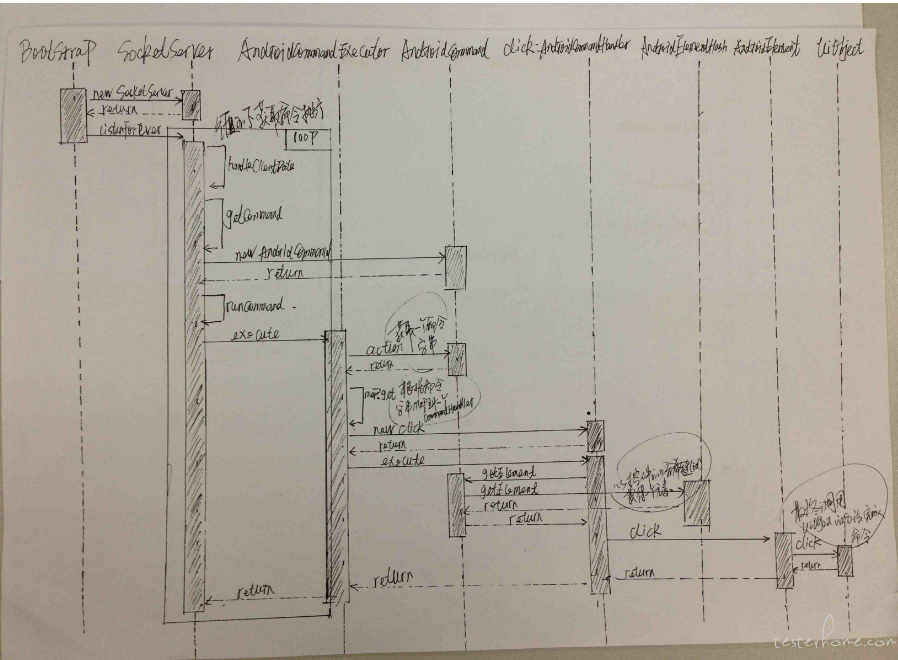 BootStrap SocketServer AndroidCommandExecutor AndroidCommand click:AndroidCommandHandler AndroidElementHash AndroidElement UiObject
new SocketServer
return
listenForever
获取命令
loop
handleClientData
getCommand
new AndroidCommand
return
runCommand
execute
获取一命令
字串
action
return
map get 根据命令
字串
CommandHandler
new click
return
execute
getElement
getElement
return
return
click
最终调用
命令
click
return
return
return
return
testerhome.com